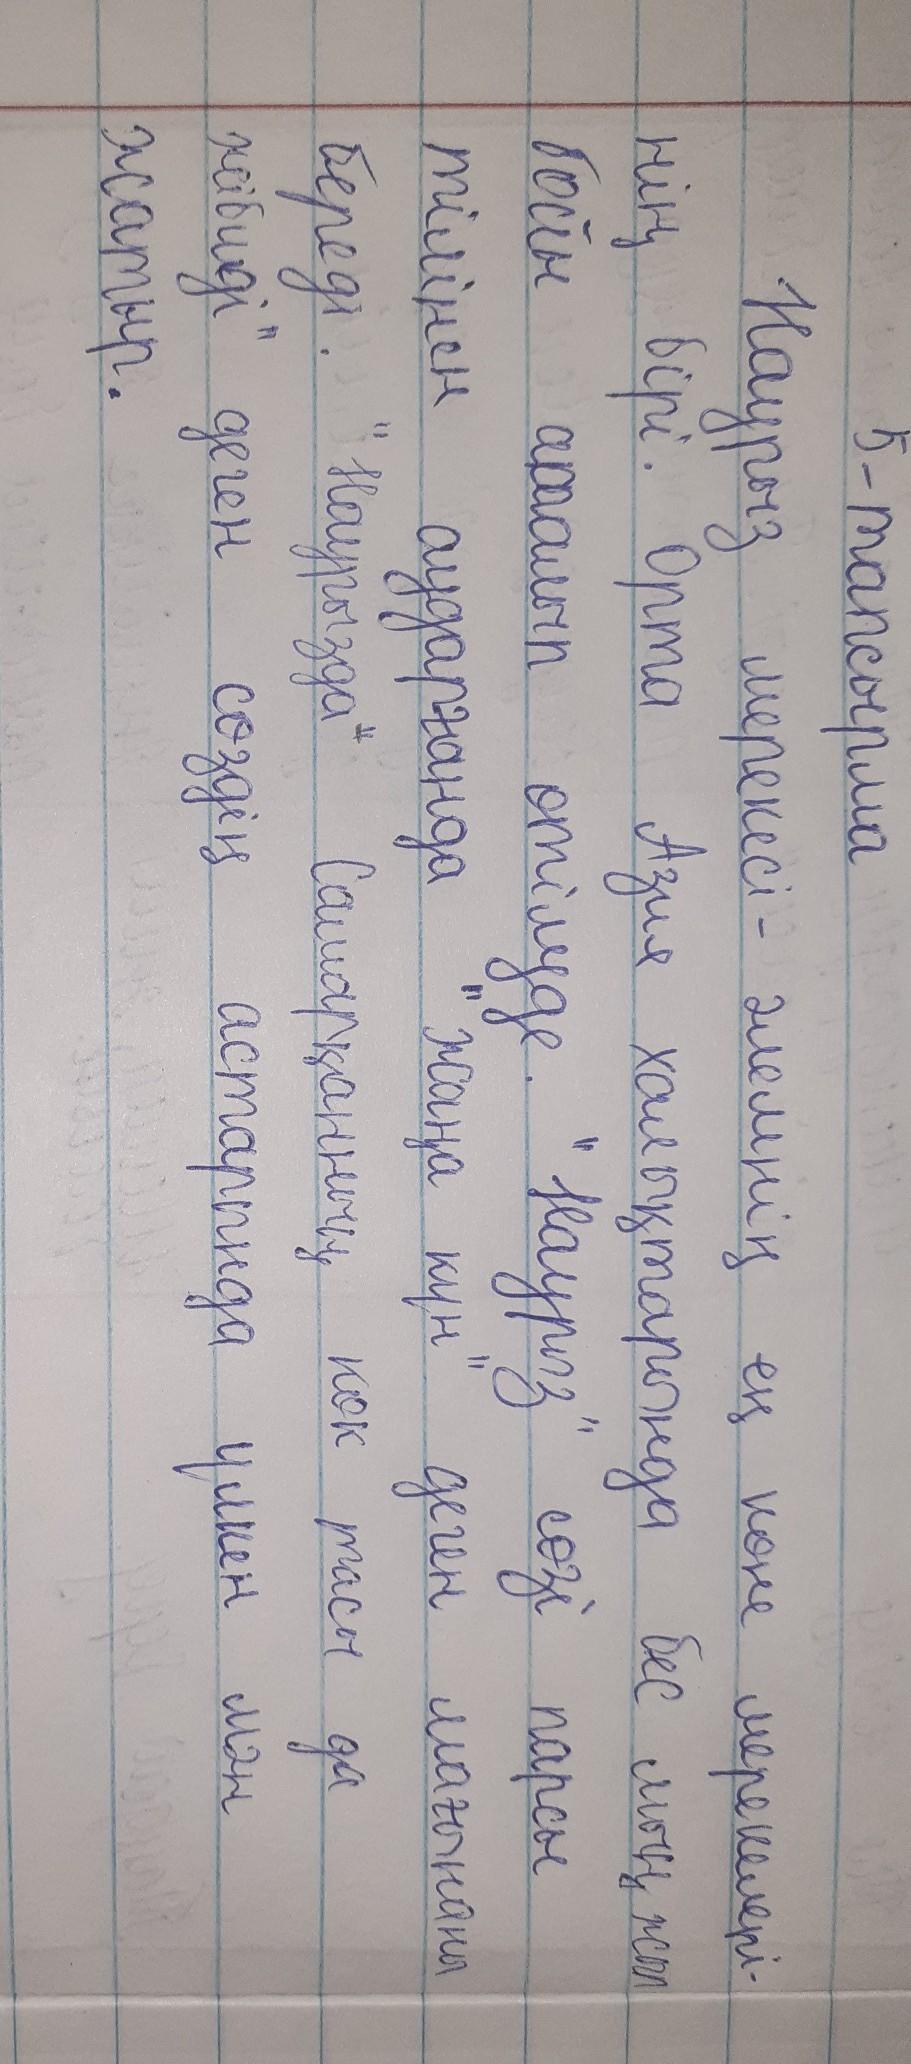 5-тапсырма
Наурыз мерекесі - әлемнің ең көне мерекелері-
нің бірі. Орта Азия халықтарында бес мың жыл
бойы аталып өтілуде. "Наурыз" сөзі парсы
тілінен аударғанда "жаңа күн" деген мағынаны
береді. "Наурызда" Самарқанның көк тасы да
жібиді" деген сөздің астарпнда үлкен мән
жатыр.